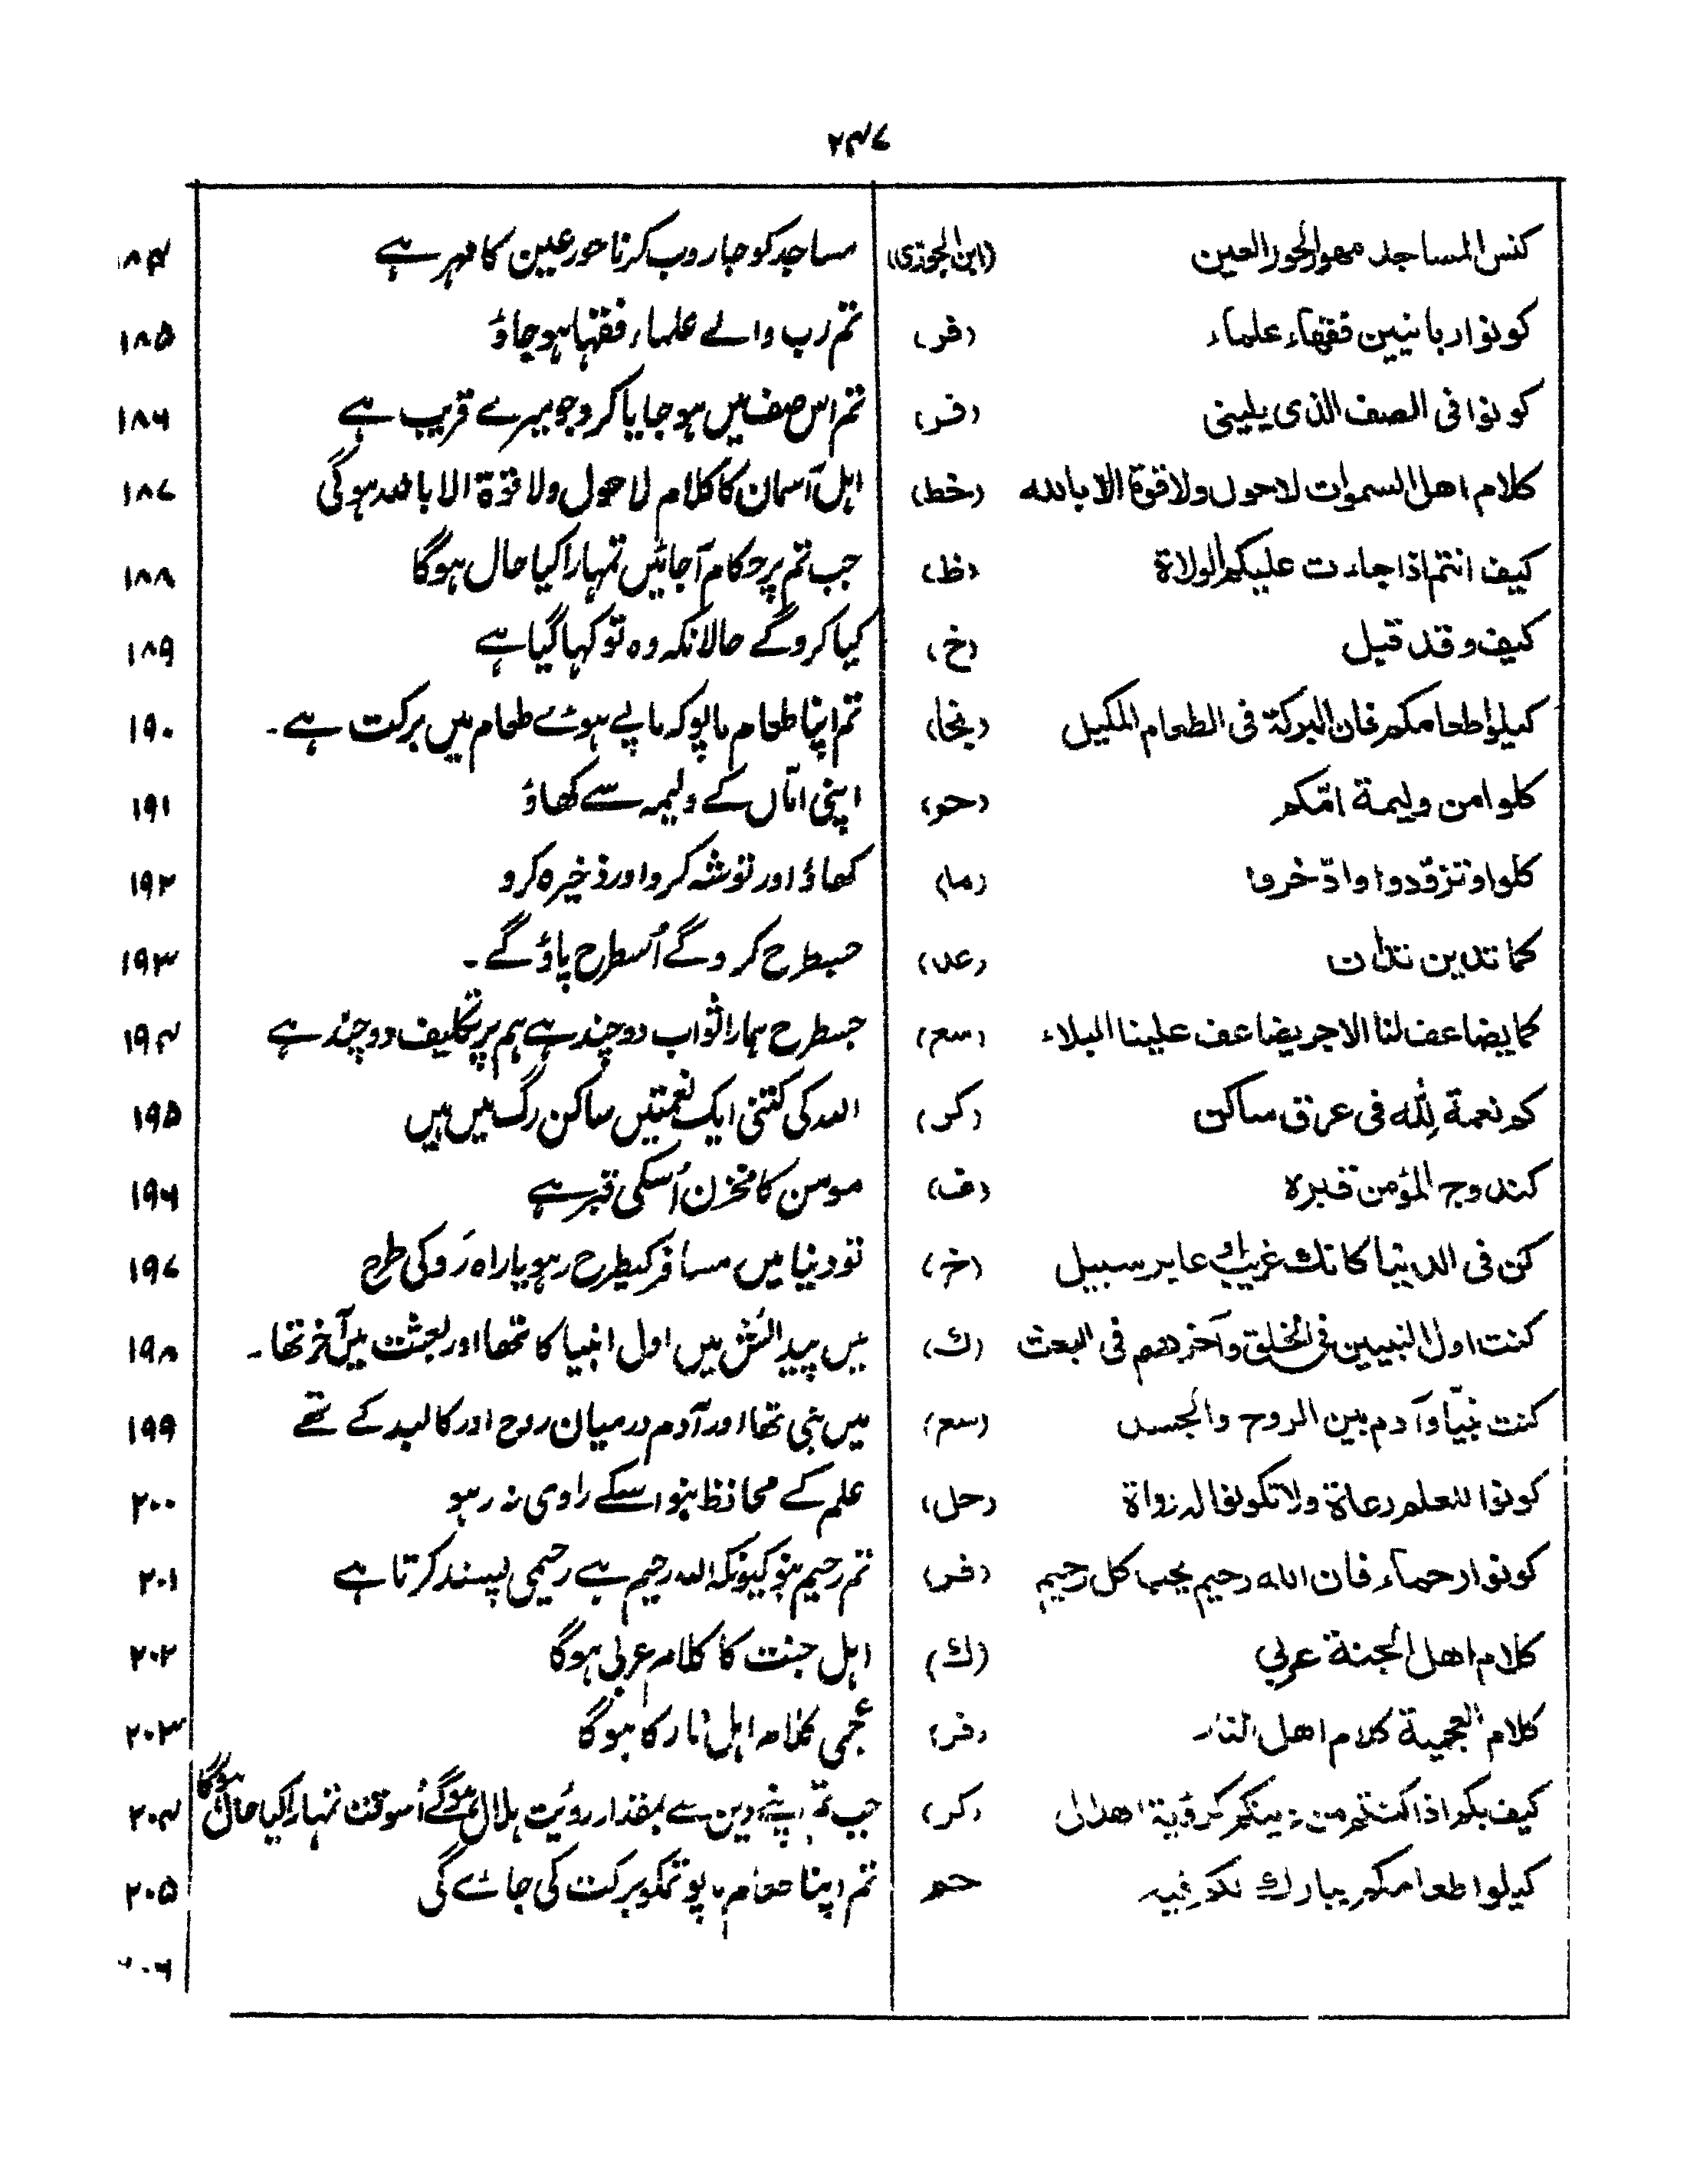 ۲۴۷
کنس المساجد مھور الحور العین (ابن الجوزی) مساجد کو جاروب کرنا حور عین کا مہر ہے ۱۸۴
کونوا ربانیین فقھاء علماء (فر) تم رب والے علماء فقہا ہو جاؤ ۱۸۵
کونوا فی الصف الذی یلینی (فر) تم اس صف میں ہو جایا کرو جو میرے قریب ہے ۱۸۶
کلام اھل السموات لاحول ولا قوة الا بالله (خط) اہل آسمان کا کلام لا حول ولا قوة الا باللہ ہوگی ۱۸۷
کیف انتم اذا جاءت علیکم الولاة (ظ) جب تم پر حکام آجائیں تمہارا کیا حال ہوگا ۱۸۸
کیف و قد قیل (خ) کیا کروگے حالانکہ وہ تو کہا گیا ہے ۱۸۹
کیلوا طعامکم فان البرکة فی الطعام المکیل (نجا) تم اپنا طعام ماپو کہ ماپے ہوئے طعام میں برکت ہے۔ ۱۹۰
کلوا من ولیمة امّکم (حو) اپنی امّاں کے ولیمہ سے کھاؤ ۱۹۱
کلوا و تزوّدوا وادّخروا (ما) کھاؤ اور توشہ کرو اور ذخیرہ کرو ۱۹۲
کما تدین تدان (عد) جسطرح کروگے اُسطرح پاؤگے۔ ۱۹۳
کما یضاعف لنا الاجر یضاعف علینا البلاء (سع) جسطرح ہمارا ثواب دوچند ہے ہم پر تکلیف دوچند ہے ۱۹۴
کم نعمة لِلّٰہ فی عرق ساکن (کر) اللہ کی کتنی ایک نعمتیں ساکن رگ میں ہیں ۱۹۵
کندوج المؤمن قبرہ (ف) مومن کا مخزن اُسکی قبر ہے ۱۹۶
کن فی الدنیا کانک غریب او عابر سبیل (خ) تو دنیا میں مسافر کیطرح رہو یا راہ رَو کی طرح ۱۹۷
کنت اول النبیین فی الخلق وآخرھم فی البعث (ك) میں پیدائش میں اول انبیا کا تھا اور بعثت میں آخر تھا۔ ۱۹۸
کنت نبیّا وآدم بین الروح والجسد (سع) میں نبی تھا اور آدم درمیان روح اور کالبد کے تھے ۱۹۹
کونوا للعلم رعاة ولا تکونوا له رواة (حل) علم کے محافظ بنو اسکے راوی نہ رہو ۲۰۰
کونوا رحماء فان الله رحیم یحب کل رحیم (فر) تم رحیم بنو کیونکہ اللہ رحیم ہے رحیمی پسند کرتا ہے ۲۰۱
کلام اھل الجنة عربی (ك) اہل جنت کا کلام عربی ہوگا ۲۰۲
کلام العجمیة کلام اھل النار (فر) عجمی کلام اہل نار کا ہوگا ۲۰۳
کیف بکم اذا کنتم من دینکم کرؤیة الھلال (کر) جب تم اپنے دین سے بمقدار رویُت ہلال ہوگے اُسوقت تمہارا کیا حال ہوگا ۲۰۴
کیلوا طعامکم یبارك لکم فیه حم تم اپنا طعام ماپو تمکو برکت کی جائے گی ۲۰۵
۲۰۶